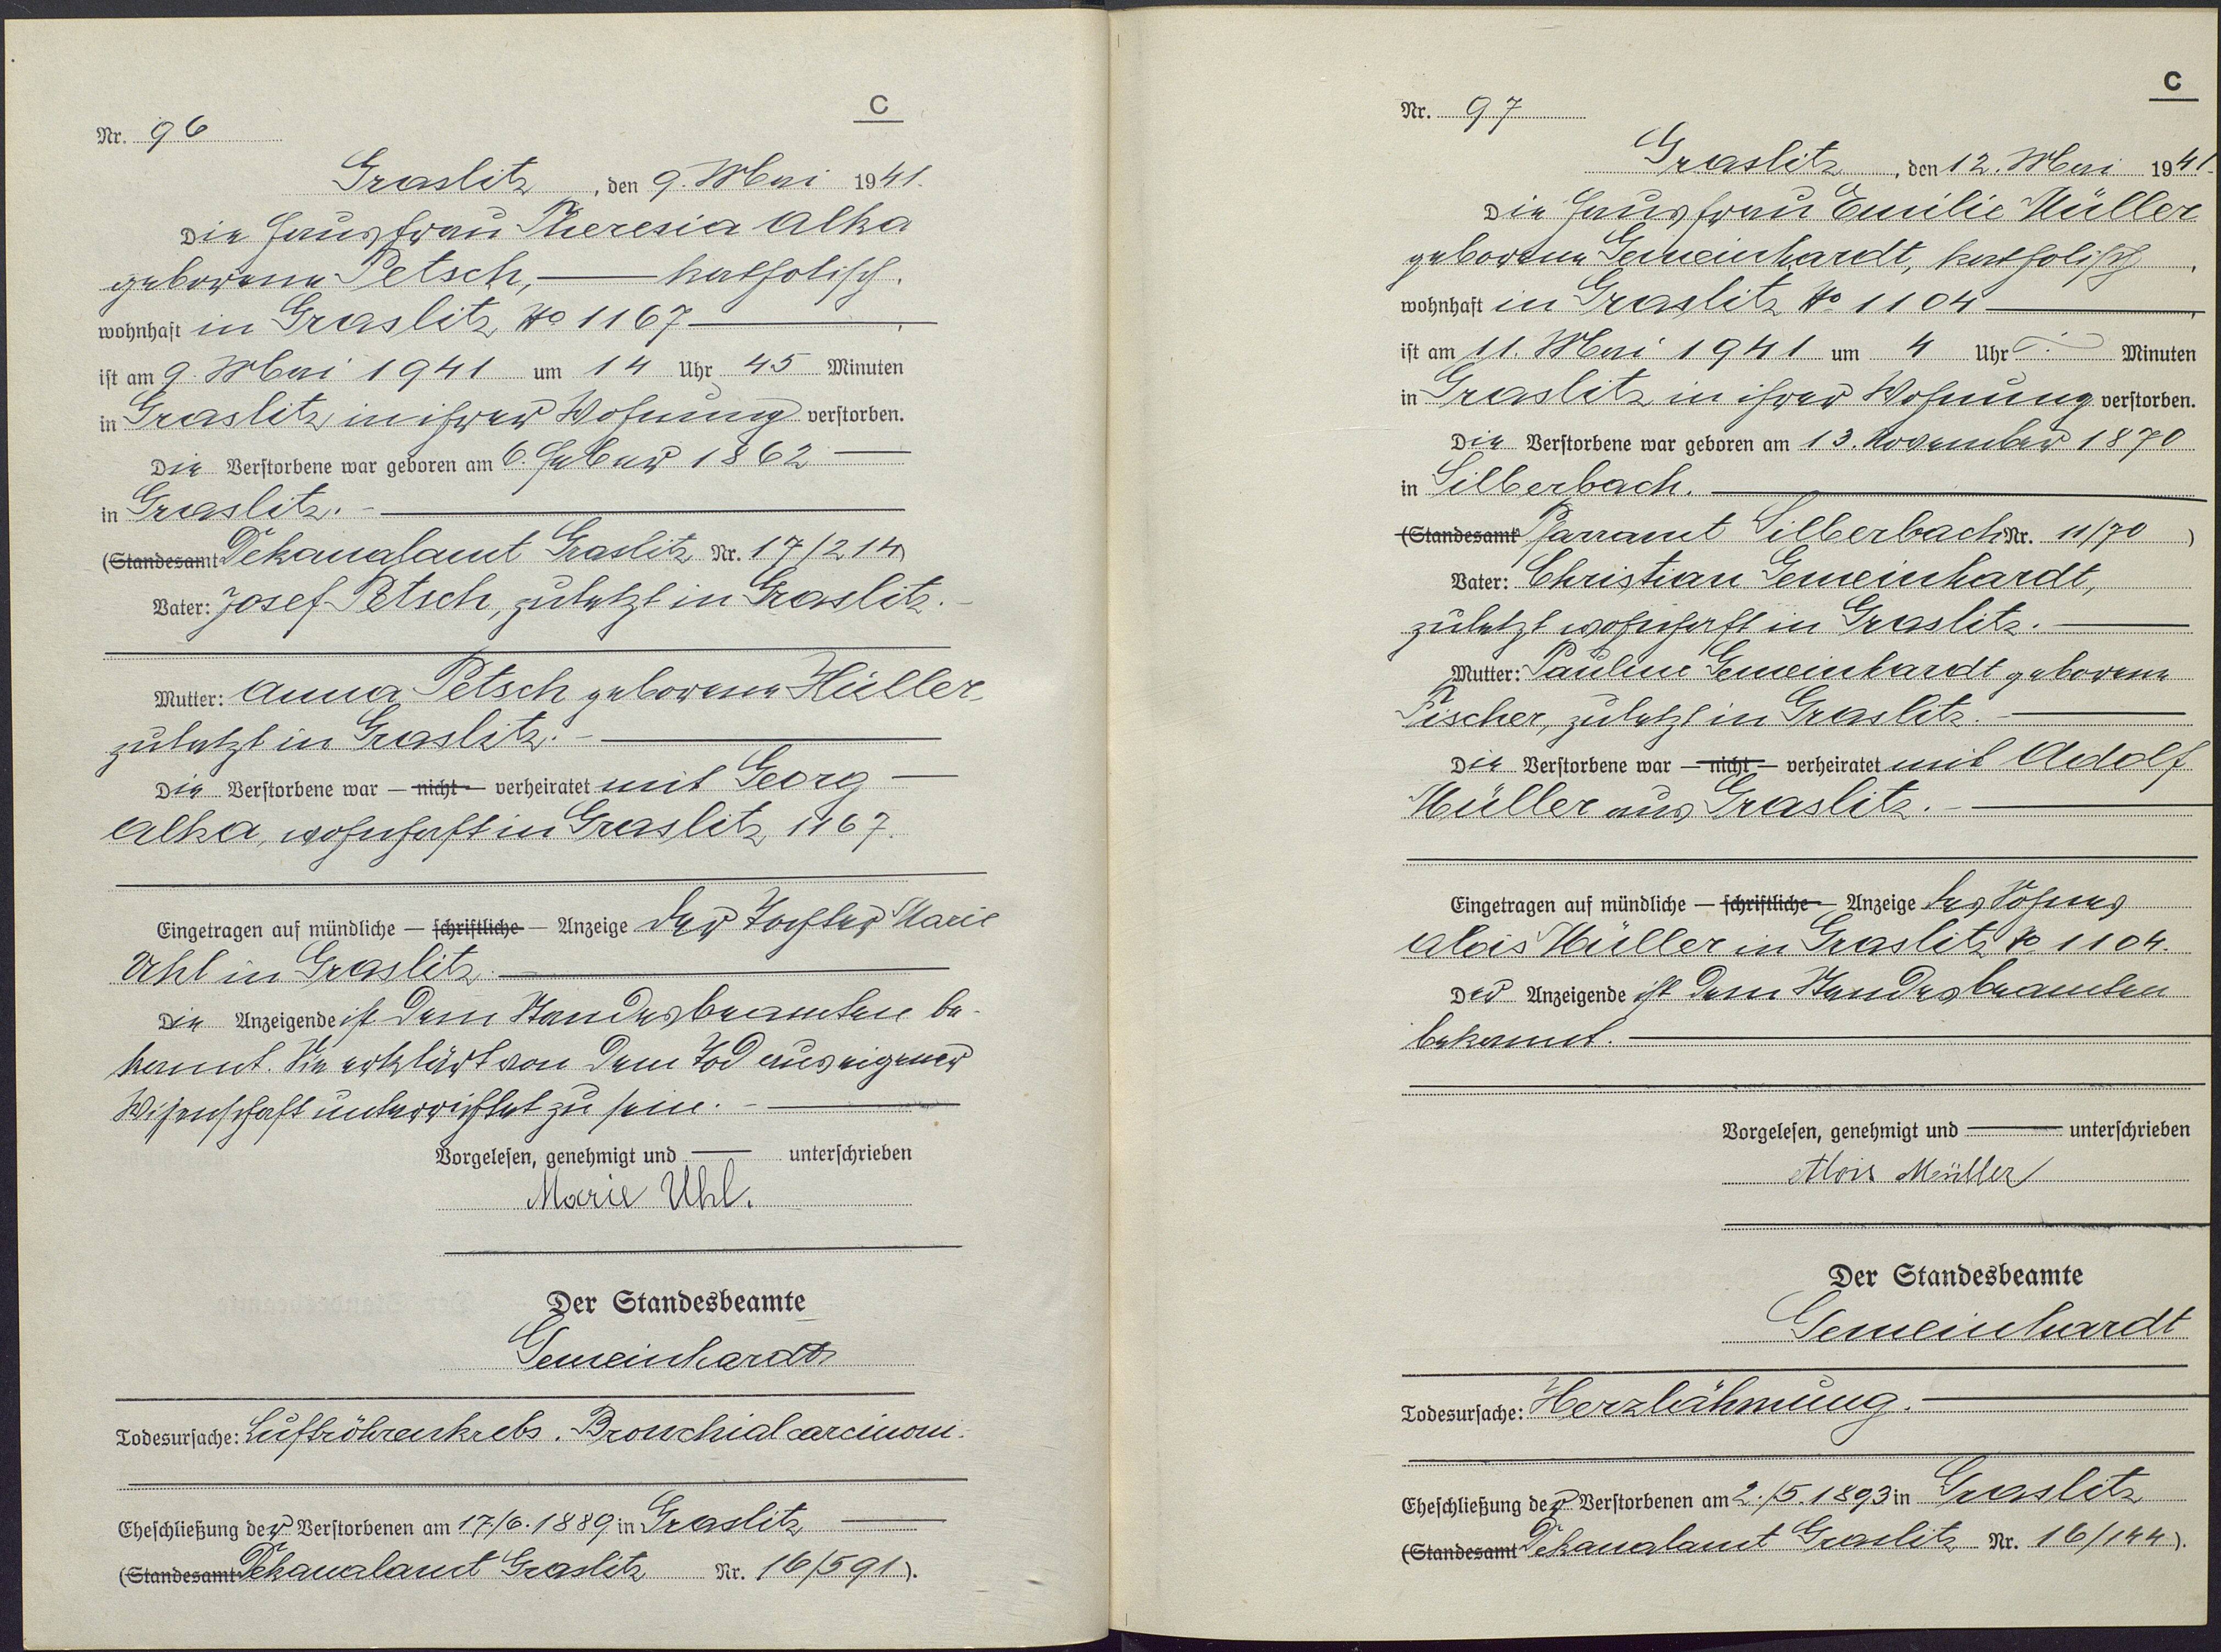 C
Nr. 96
Graslitz, den 9. Mai 1941.
Die Hausfrau Theresia Alka
geborene Petsch, — katholisch.
wohnhaft in Graslitz No 1167 —,
ist am 9. Mai 1941 um 14 Uhr 45 Minuten
in Graslitz in ihrer Wohnung verstorben.
Die Verstorbene war geboren am 6. Feber 1862 —
in Graslitz. —
(Standesamt Dekanalamt Graslitz Nr. 17/214)
Vater: Josef Petsch, zuletzt in Graslitz. —
Mutter: Anna Petsch geborene Hüller,
zuletzt in Graslitz. —
Die Verstorbene war — nicht — verheiratet mit Georg —
Alka, wohnhaft in Graslitz 1167.
Eingetragen auf mündliche — schriftliche — Anzeige der Tochter Marie
Uhl in Graslitz. —
Die Anzeigende ist dem Standesbeamten be-
kannt. Sie erklärt von dem Tod aus eigener
Wissenschaft unterrichtet zu sein. —
Vorgelesen, genehmigt und — unterschrieben
Marie Uhl.
Der Standesbeamte
Gemeinhardt
Todesursache: Luftröhrenkrebs. Bronchialcarcinom.
Eheschließung der Verstorbenen am 17./6. 1889 in Graslitz —
(Standesamt Dekanalamt Graslitz Nr. 16/591).
C
Nr. 97
Graslitz, den 12. Mai 1941.
Die Hausfrau Emilie Müller
geborene Gemeinhardt, katholisch,
wohnhaft in Graslitz No. 1104 —,
ist am 11. Mai 1941 um 4 Uhr Minuten
in Graslitz in ihrer Wohnung verstorben.
Die Verstorbene war geboren am 13. November 1870
in Silberbach. —
(Standesamt Pfarramt Silberbach Nr. 11/70)
Vater: Christian Gemeinhardt,
zuletzt wohnhaft in Graslitz. —
Mutter: Pauline Gemeinhardt geborene
Fischer, zuletzt in Graslitz. —
Die Verstorbene war — nicht — verheiratet mit Adolf
Müller aus Graslitz. —
Eingetragen auf mündliche — schriftliche — Anzeige des Sohnes
Alois Müller in Graslitz No 1104.
Der Anzeigende ist dem Standesbeamten
bekannt. —
Vorgelesen, genehmigt und — unterschrieben
Alois Müller
Der Standesbeamte
Gemeinhardt
Todesursache: Herzlähmung. —
Eheschließung der Verstorbenen am 2./5. 1893 in Graslitz
(Standesamt Dekanalamt Graslitz Nr. 16/144).